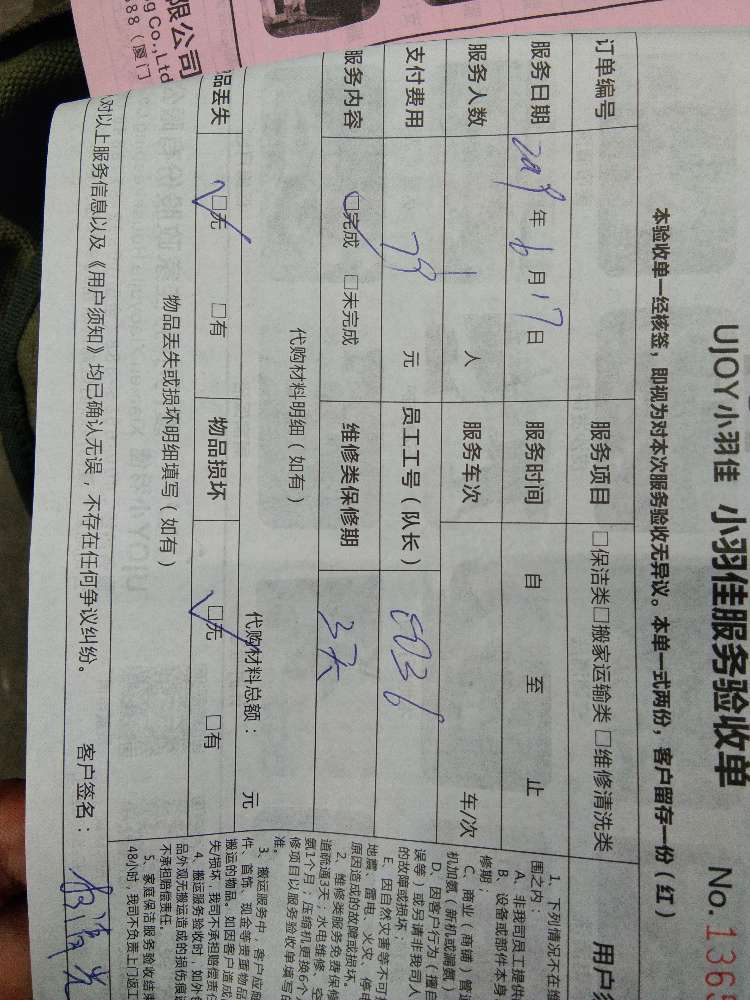 限公司
g Co.,Ltd
88（厦门
UJOY小羽佳 小羽佳服务验收单 No. 136
本验收单一经核签，即视为对本次服务验收无异议。本单一式两份，客户留存一份（红）
订单编号 服务项目 □保洁类□搬家运输类 □维修清洗类
服务日期 年 6 月 17 日 服务时间 自 至 止
服务人数 1 人 服务车次 车/次
支付费用 元 员工工号（队长） E036
服务内容 □完成 □未完成 维修类保修期 3天
代购材料明细（如有） 代购材料总额： 元
品丢失 □无 □有 物品损坏 □无 □有
物品丢失或损坏明细填写（如有）
对以上服务信息以及《用户须知》均已确认无误，不存在任何争议纠纷。 客户签名：
用户
1、下列情况不在维
围之内：
A、非我司员工提供
B、设备或部件本身
修期；
C、商业（商铺）管道
机加氨（新机或漏氨
D、因客户行为（擅自
误等）或另请非我司人
的故障或损坏；
E、因自然灾害等不可
地震、雷电、火灾、停电
原因造成的故障或损坏。
2、维修类服务免费保修
道疏通3天；水电维修、空
氨1个月；压缩机更换6个
修项目以服务验收单填写
准。
3、搬运服务中，客户应
件、首饰、现金等贵重物品
搬运的物品，如因客户造成
失/损坏，我司不承担赔偿责
4、搬运服务验收时，如外包
品外观无搬运造成的损伤痕
不承担赔偿责任。
5、家庭保洁服务验收结束
48小时，我司不负责上门返工